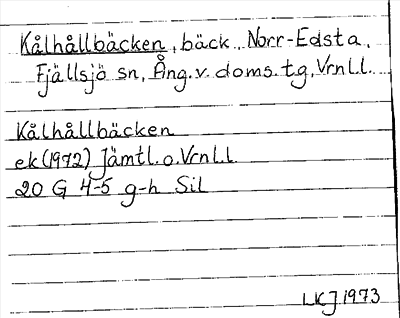 Kålhållbäcken, bäck. Norr-Edsta,
Fjällsjö sn, Ång. v. doms. tg, Vrnll.
Kålhållbäcken
ek (1972) Jämtl. o. Vrnll
20 G 4-5 g-h Sil
LKJ 1973